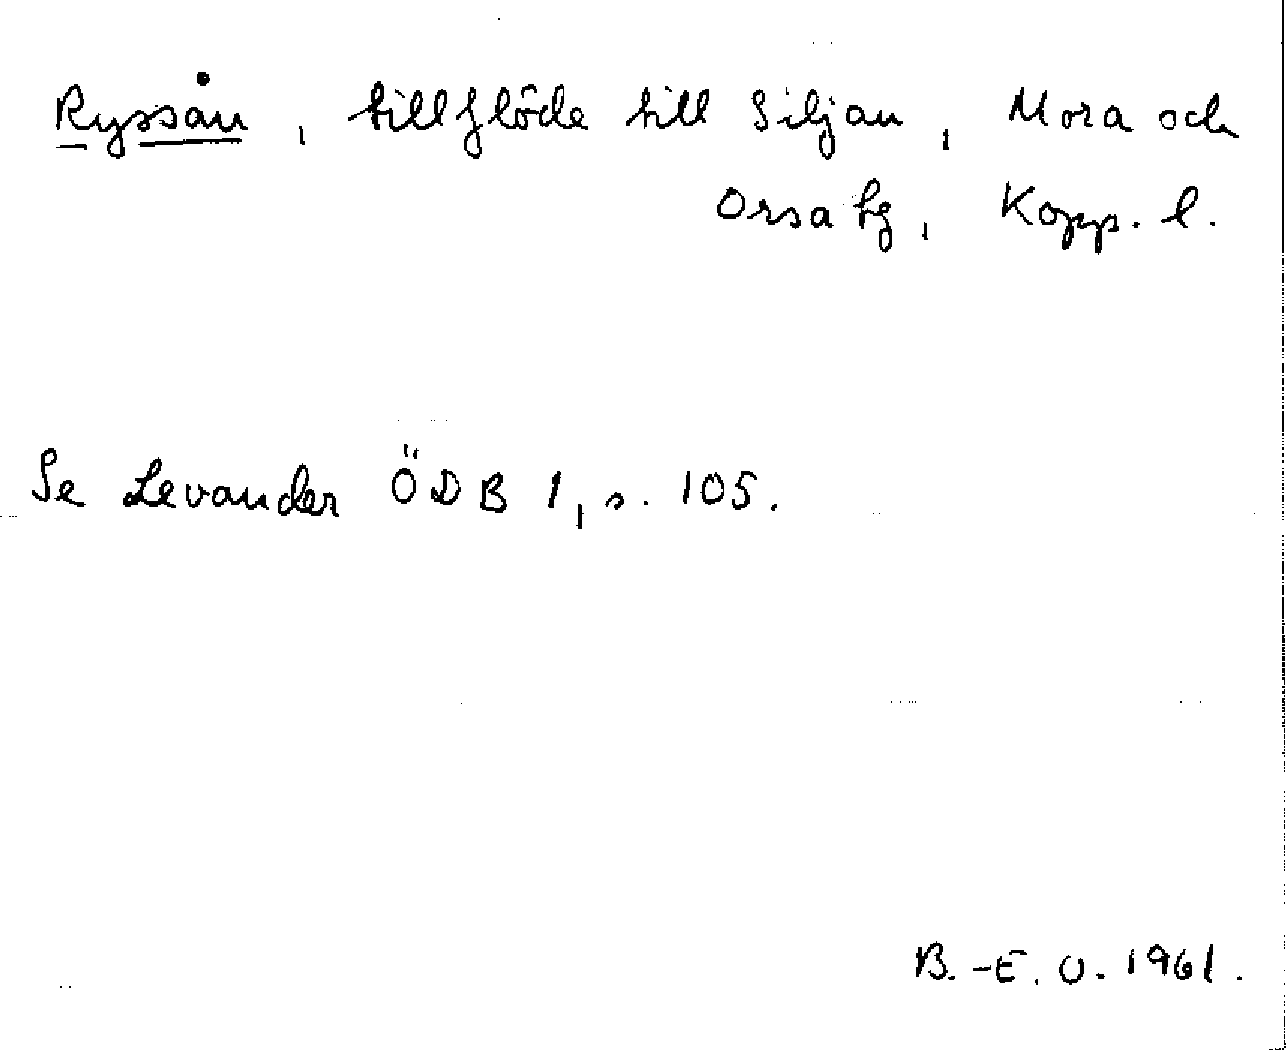 Ryssån, tillflöde till Siljan, Mora och
Orsa tg, Kopp. l.
Se Levander ÖDB 1, s. 105.
B.-E. O. 1961.